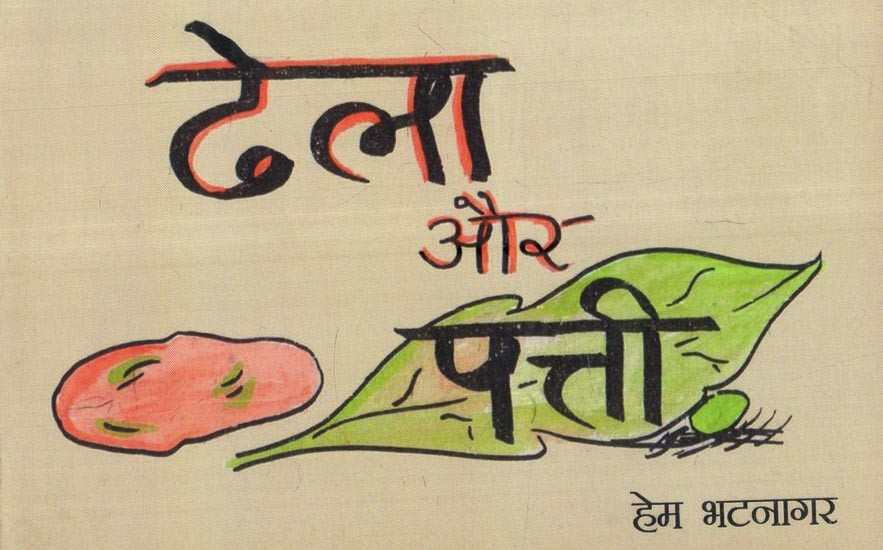 ढेला
और
पत्ती
हेम भटनागर